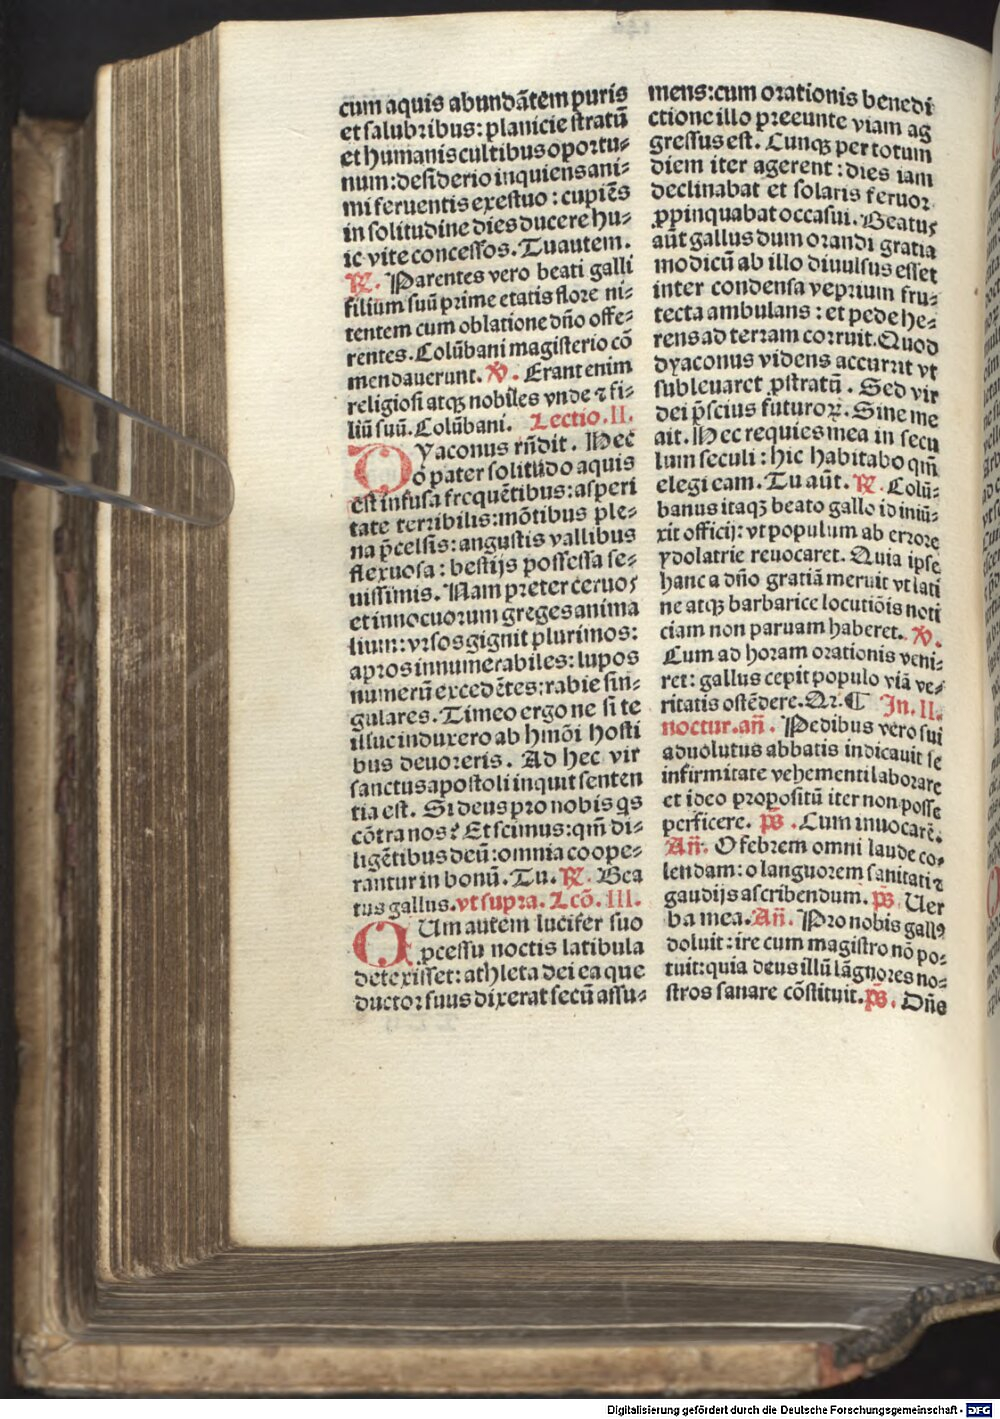 cum aquis abundātem puris
et salubribus: planicie stratū
et humanis cultibus oportu⸗
num: desiderio inquiens ani⸗
mi feruentis exestuo: cupiēs
in solitudine dies ducere hu⸗
ic vite concessos. Tu autem.
℟. Parentes vero beati galli
filium suū prime etatis flore ni⸗
tentem cum oblatione dño offe⸗
rentes. Colūbani magisterio cō
mendauerunt. ℣. Erant enim
religiosi atqꝫ nobiles vnde ⁊ fi⸗
liū suū. Colūbani. Lectio. II.
DYaconus rñdit. Hec
o pater solitudo aquis
est infusa frequētibus: asperi
tate terribilis: mōtibus ple⸗
na p̄celsis: angustis vallibus
flexuosa: bestijs possessa se⸗
uissimis. Nam preter ceruos
et innocuorum greges anima
lium: vrsos gignit plurimos:
apros innumerabiles: lupos
numerū excedētes: rabie sin⸗
gulares. Timeo ergo ne si te
illuc induxero ab hmōi hosti
bus deuoreris. Ad hec vir
sanctus apostoli inquit senten
tia est. Si deus pro nobis qs
cōtra nos? Et scimus: qm̄ di⸗
ligētibus deū: omnia coope⸗
rantur in bonū. Tu. ℟. Bea
tus gallus. vt supra. Lcō. III.
CUm autem lucifer suo
ꝓcessu noctis latibula
detexisset: athleta dei ea que
ductor suus dixerat secū assu⸗
mens: cum orationis benedi
ctione illo preeunte viam ag
gressus est. Cunqꝫ per totum
diem iter agerent: dies iam
declinabat et solaris feruor
ꝓpinquabat occasui. Beatus
aūt gallus dum orandi gratia
modicū ab illo diuulsus esset
inter condensa veprium fru⸗
tecta ambulans: et pede he⸗
rens ad terram corruit. Quod
dyaconus videns accurrit vt
subleuaret ꝓstratū. Sed vir
dei p̄scius futuroꝝ. Sine me
ait. Hec requies mea in secu
lum seculi: hic habitabo qm̄
elegi eam. Tu aūt. ℟. Colū⸗
banus itaqꝫ beato gallo id iniū⸗
xit officij: vt populum ab errore
ydolatrie reuocaret. Quia ipse
hanc a dño gratiā meruit vt lati
ne atqꝫ barbarice locutiōis noti
ciam non paruam haberet. ℣.
Cum ad horam orationis veni⸗
ret: gallus cepit populo viā ve⸗
ritatis ostēdere. Qr. ¶ In. II.
noctur. añ. Pedibus vero sui
aduolutus abbatis indicauit se
infirmitate vehementi laborare
et ideo propositū iter non posse
perficere. ps̄. Cum inuocarē.
Añ. O febrem omni laude co⸗
lendam: o languorem sanitati ⁊
gaudijs ascribendum. ps̄. Uer
ba mea. Añ. Pro nobis gallꝰ
doluit: ire cum magistro nō po⸗
tuit: quia deus illū lāguores no⸗
stros sanare cōstituit. ps̄. Dñe
Digitalisierung gefördert durch die Deutsche Forschungsgemeinschaft - DFG